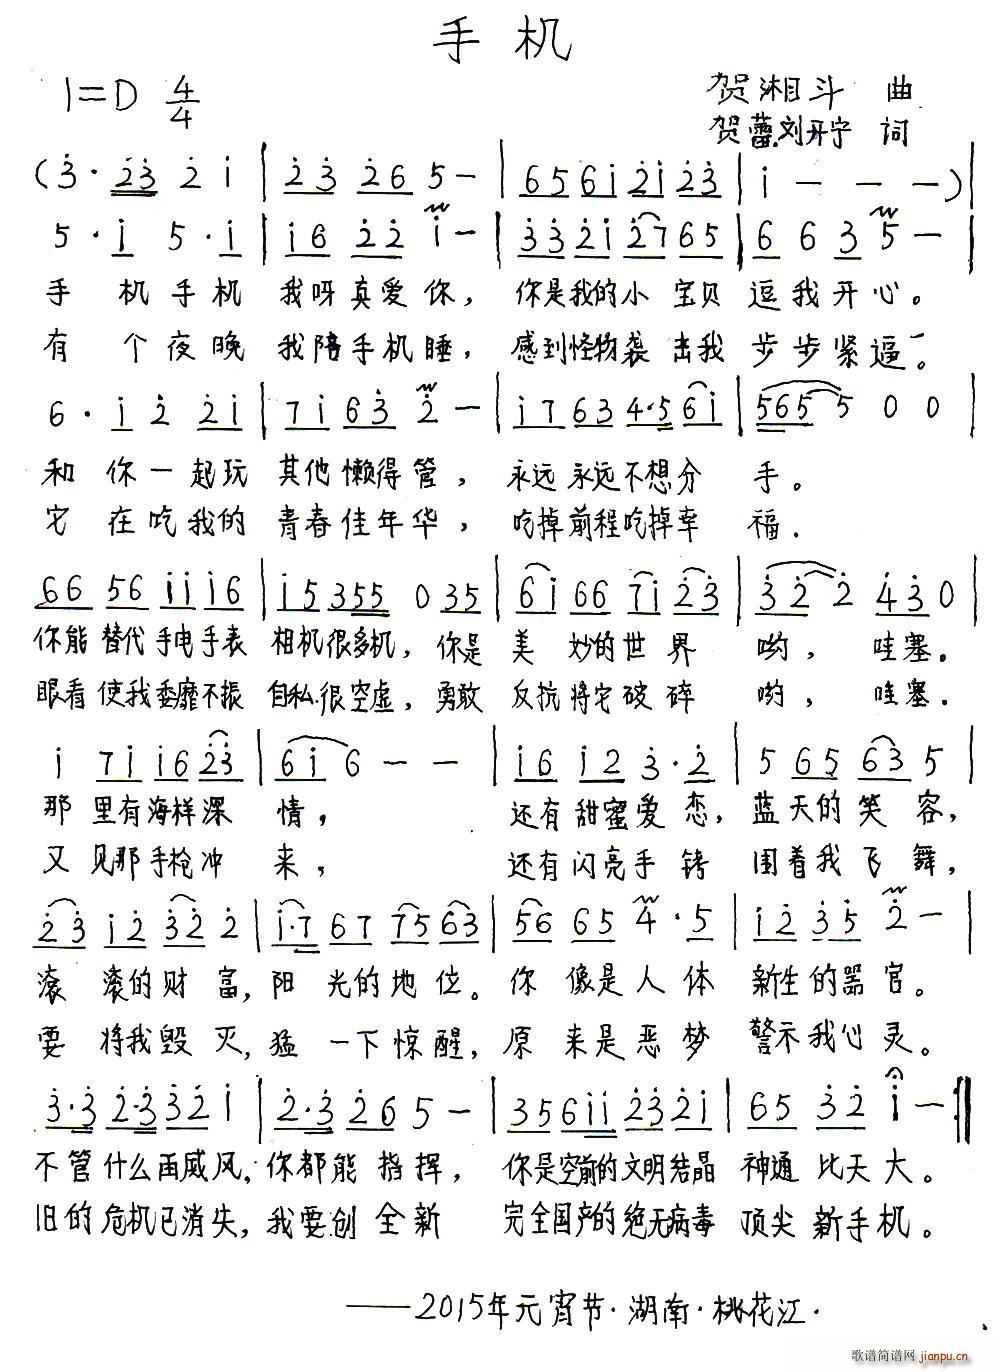 手机
1=D 4/4
贺湘斗 曲
贺蕾.刘开宁 词
(3· 23 2 1 | 23 26 5 - | 65 61 21 23 | 1 - - - )|
5· 1 5· 1 | 16 22 1 - | 33 21 27 65 | 6 6 3 5 - |
手 机 手 机 我呀真爱你， 你是我的小 宝贝 逗我开心。
有 个 夜 晚 我陪手机睡， 感到怪物袭 击我 步步紧逼。
6· 1 2 21 | 71 63 2 - | 17 63 4·5 61 | 565 5 0 0 |
和 你 一 起玩 其他懒得管， 永远永远不想分 手。
它 在吃我的 青春佳年华， 吃掉前程吃掉幸 福.
66 56 11 16 | 15 355 0 35 | 61 66 71 23 | 32 2 43 0 |
你能 替代 手电手表 相机很多机， 你是 美 妙的世 界 哟， 哇塞.
眼看 使我 委靡不振 自私.很空虚， 勇敢 反抗将它破 碎 哟， 哇塞.
1 71 16 23 | 61 6 - - | 16 12 3· 2 | 5 65 63 5 |
那 里有海样深 情， 还有甜蜜爱 恋， 蓝天的笑 容，
又 见那手枪冲 来， 还有闪亮手 铐 围着我飞 舞，
23 12 32 2 | 1·7 67 75 63 | 56 65 4· 5 | 12 35 2 - |
滚 滚的财 富， 阳 光的地 位。 你 像是人 体 新生的器官。
要 将我毁 灭， 猛 一下惊醒， 原 来是恶 梦 警示我心灵。
3·3 2·3 32 1 | 2·3 26 5 - | 35 611 23 21 | 65 32 1 - :‖
不管什么再威风， 你都能 指挥， 你是空前的文明结晶 神通 比天大。
旧的危机已消失， 我要创 全新 完全国产的绝无病毒 顶尖 新手机。
——2015年元宵节·湖南·桃花江·
歌谱简谱网
jianpu.cn